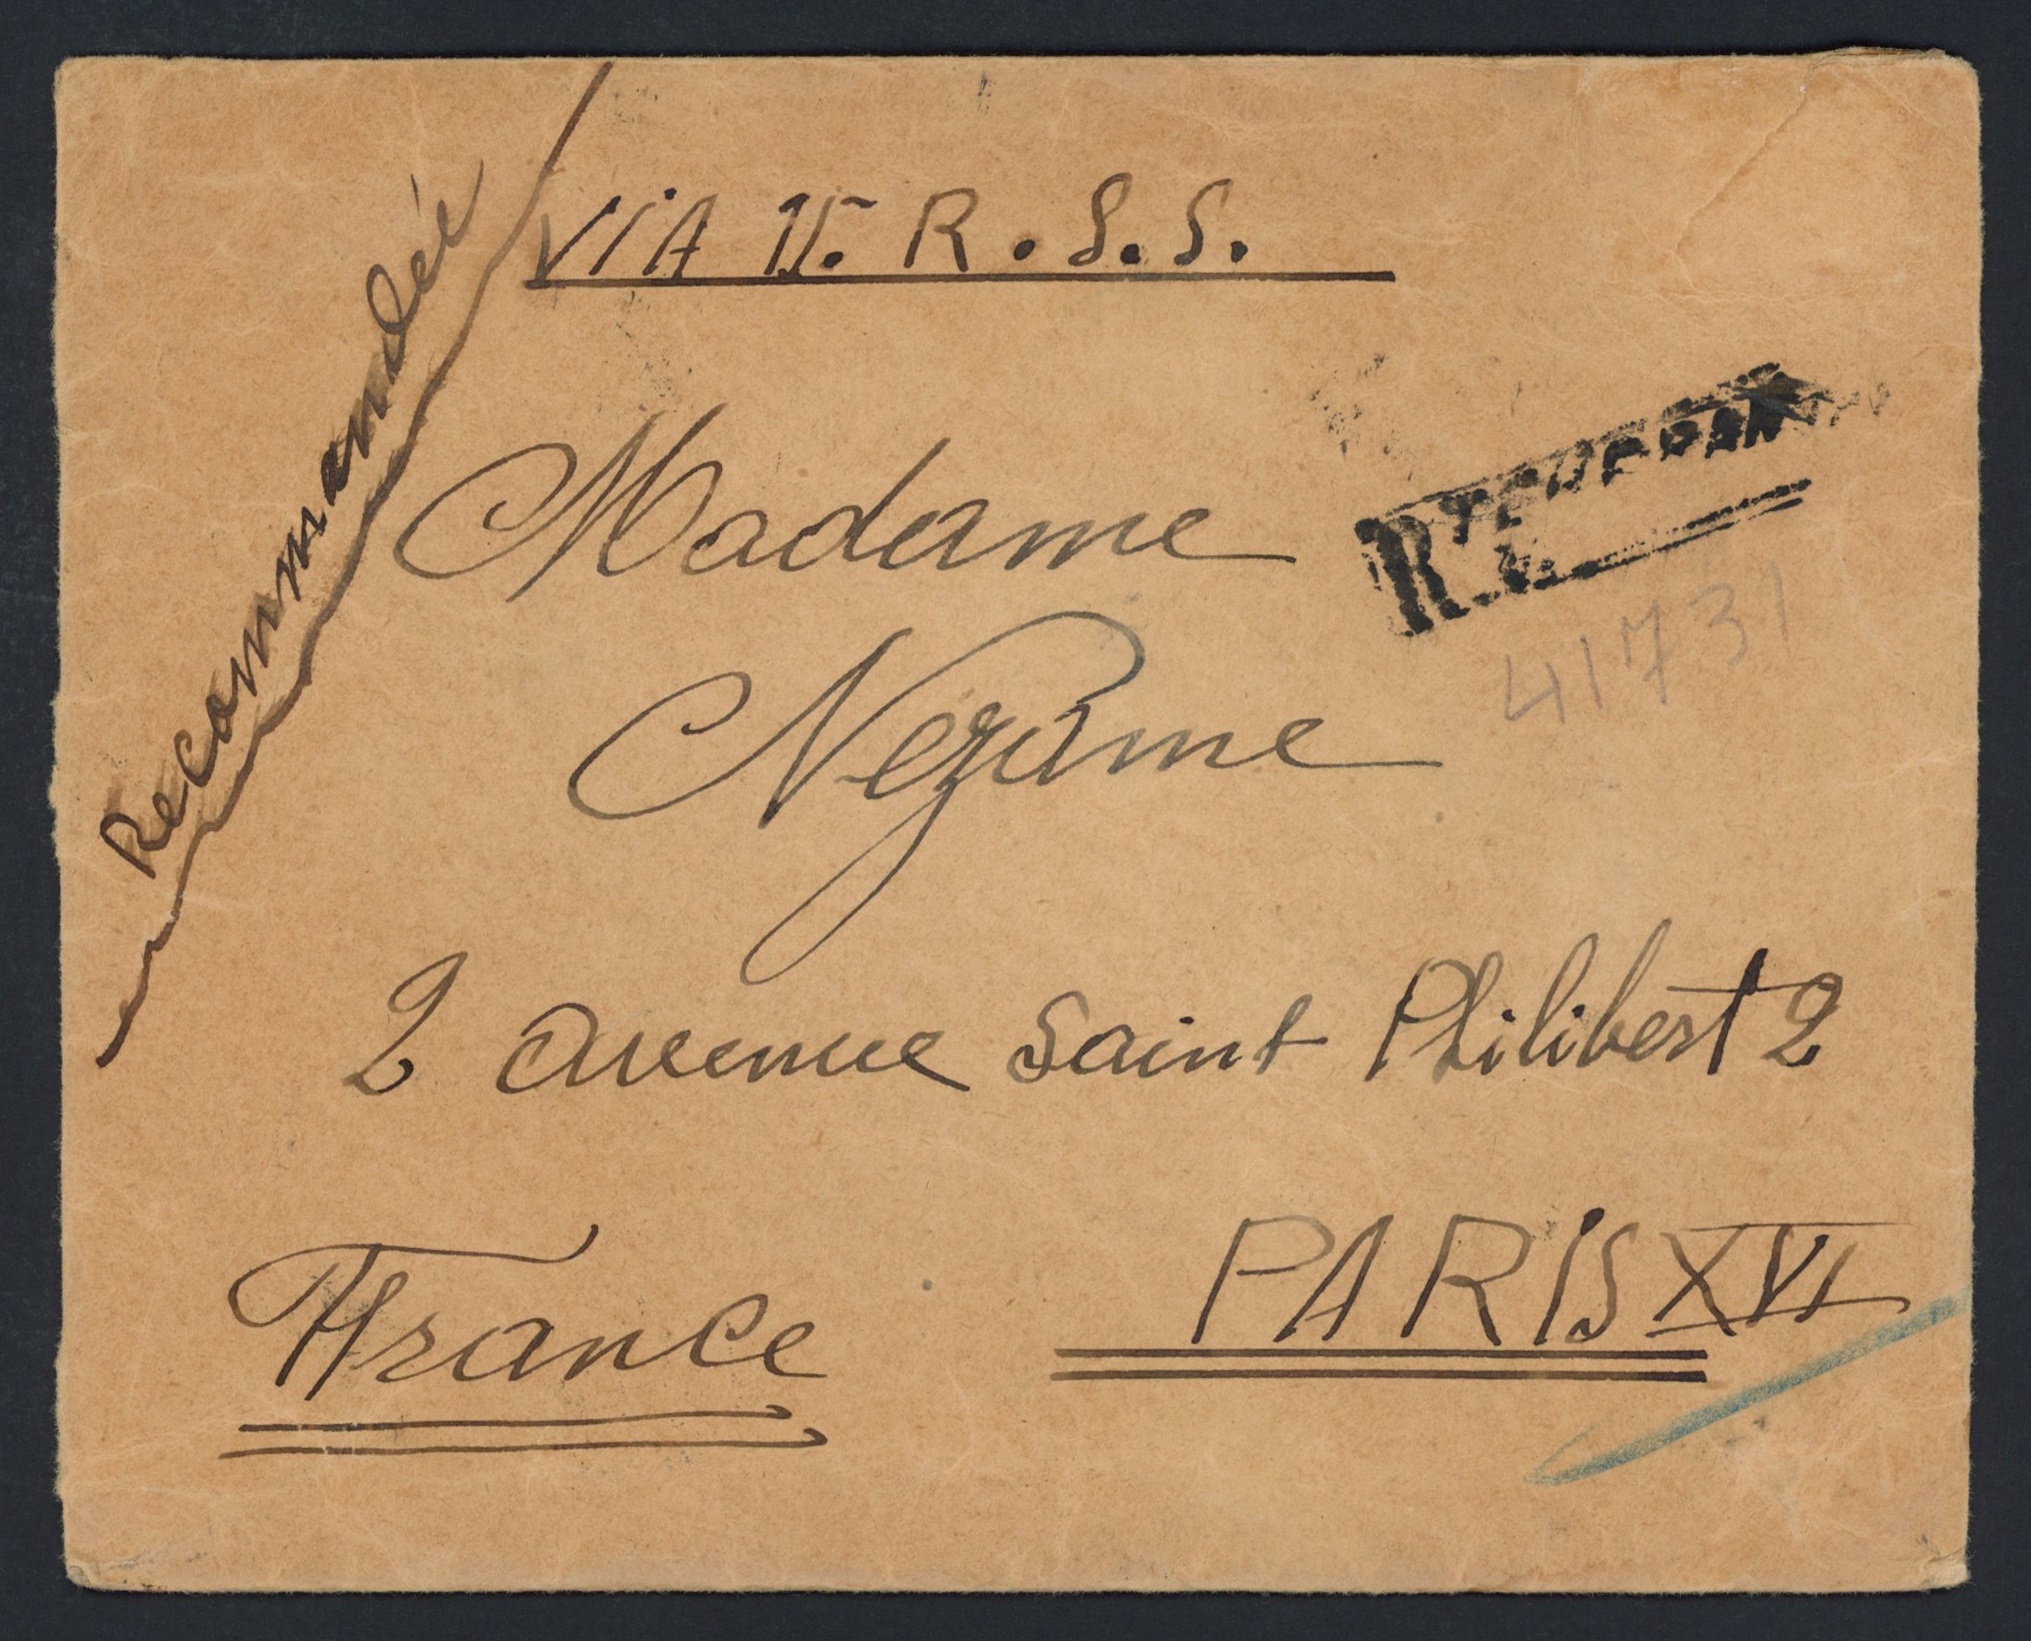 Recommandée
VIA U.R.S.S.
Madame
R. TEHERAN
N.
41731
Nezame
2 avenue Saint Philibert 2
France
PARIS XVI